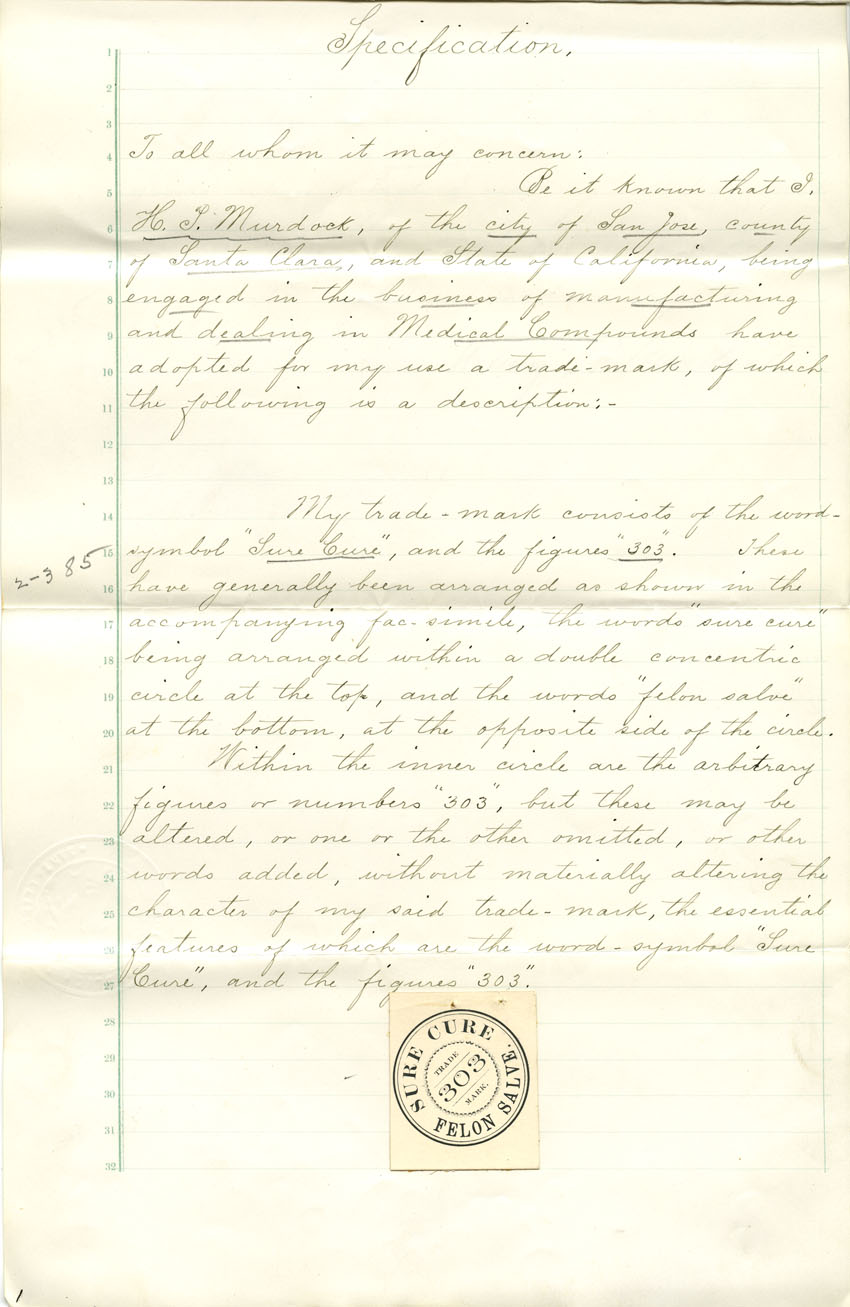 Specification.
To all whom it may concern:
Be it known that I.
H. S. Murdock, of the city of San Jose, county
of Santa Clara, and State of California, being
engaged in the business of manufacturing
and dealing in Medical Compounds have
adopted for my use a trade-mark, of which
the following is a description:-
My trade-mark consists of the word-
symbol "Sure Cure", and the figures "303". These
have generally been arranged as shown in the
accompanying fac-simile, the words "sure cure"
being arranged within a double concentric
circle at the top, and the words "felon salve"
at the bottom, at the opposite side of the circle.
Within the inner circle are the arbitrary
figures or numbers "303", but these may be
altered, or one or the other omitted, or other
words added, without materially altering the
character of my said trade-mark, the essential
features of which are the word-symbol "Sure
Cure", and the figures "303".
SURE CURE.
TRADE
303
MARK.
FELON SALVE
2-385
1
1
2
3
4
5
6
7
8
9
10
11
12
13
14
15
16
17
18
19
20
21
22
23
24
25
26
27
28
29
30
31
32